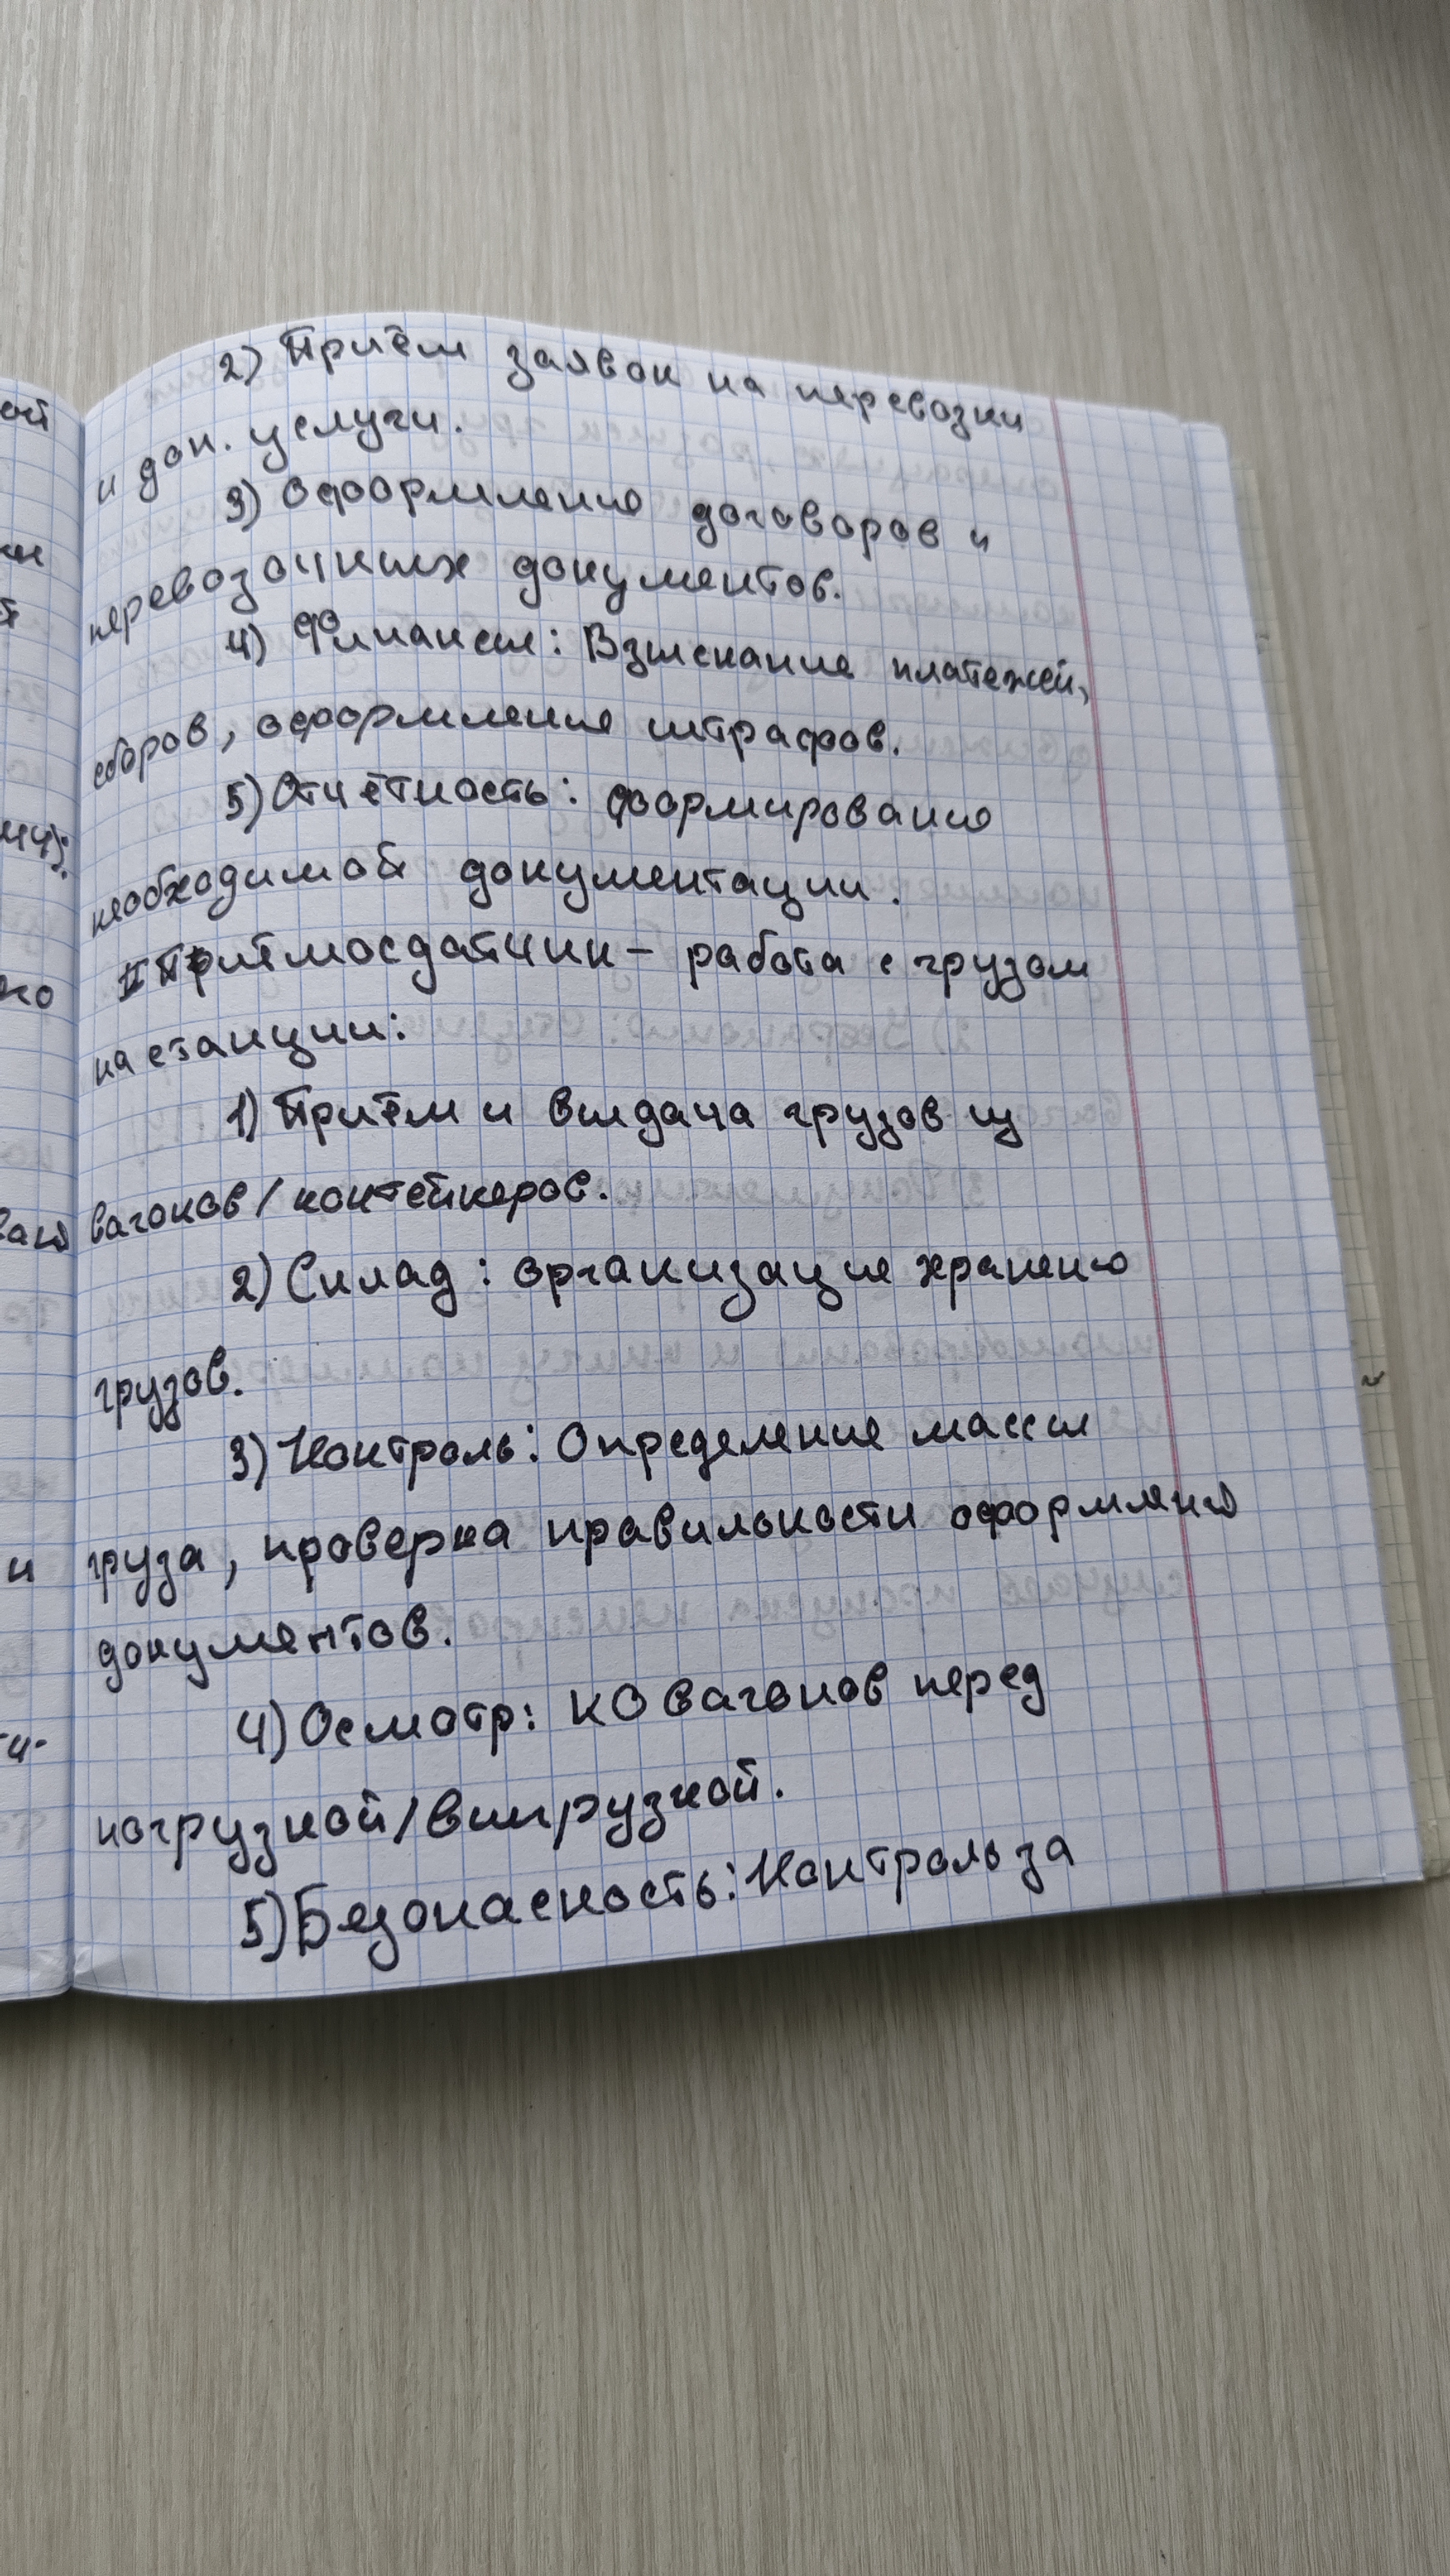 2) Приём заявок на перевозки
и доп. услуги.
3) Оформление договоров и
перевозочных документов.
4) Финансы: Взыскание платежей,
сборов, оформление штрафов.
5) Отчётность: формирование
необходимой документации.
II Приёмосдатчик - работа с грузом
на станции:
1) Приём и выдача грузов из
вагонов/контейнеров.
2) Склад: организация хранению
грузов.
3) Контроль: Определение массы
груза, проверка правильности оформлений
документов.
4) Осмотр: КО вагонов перед
погрузкой/выгрузкой.
5) Безопасность: Контроль за